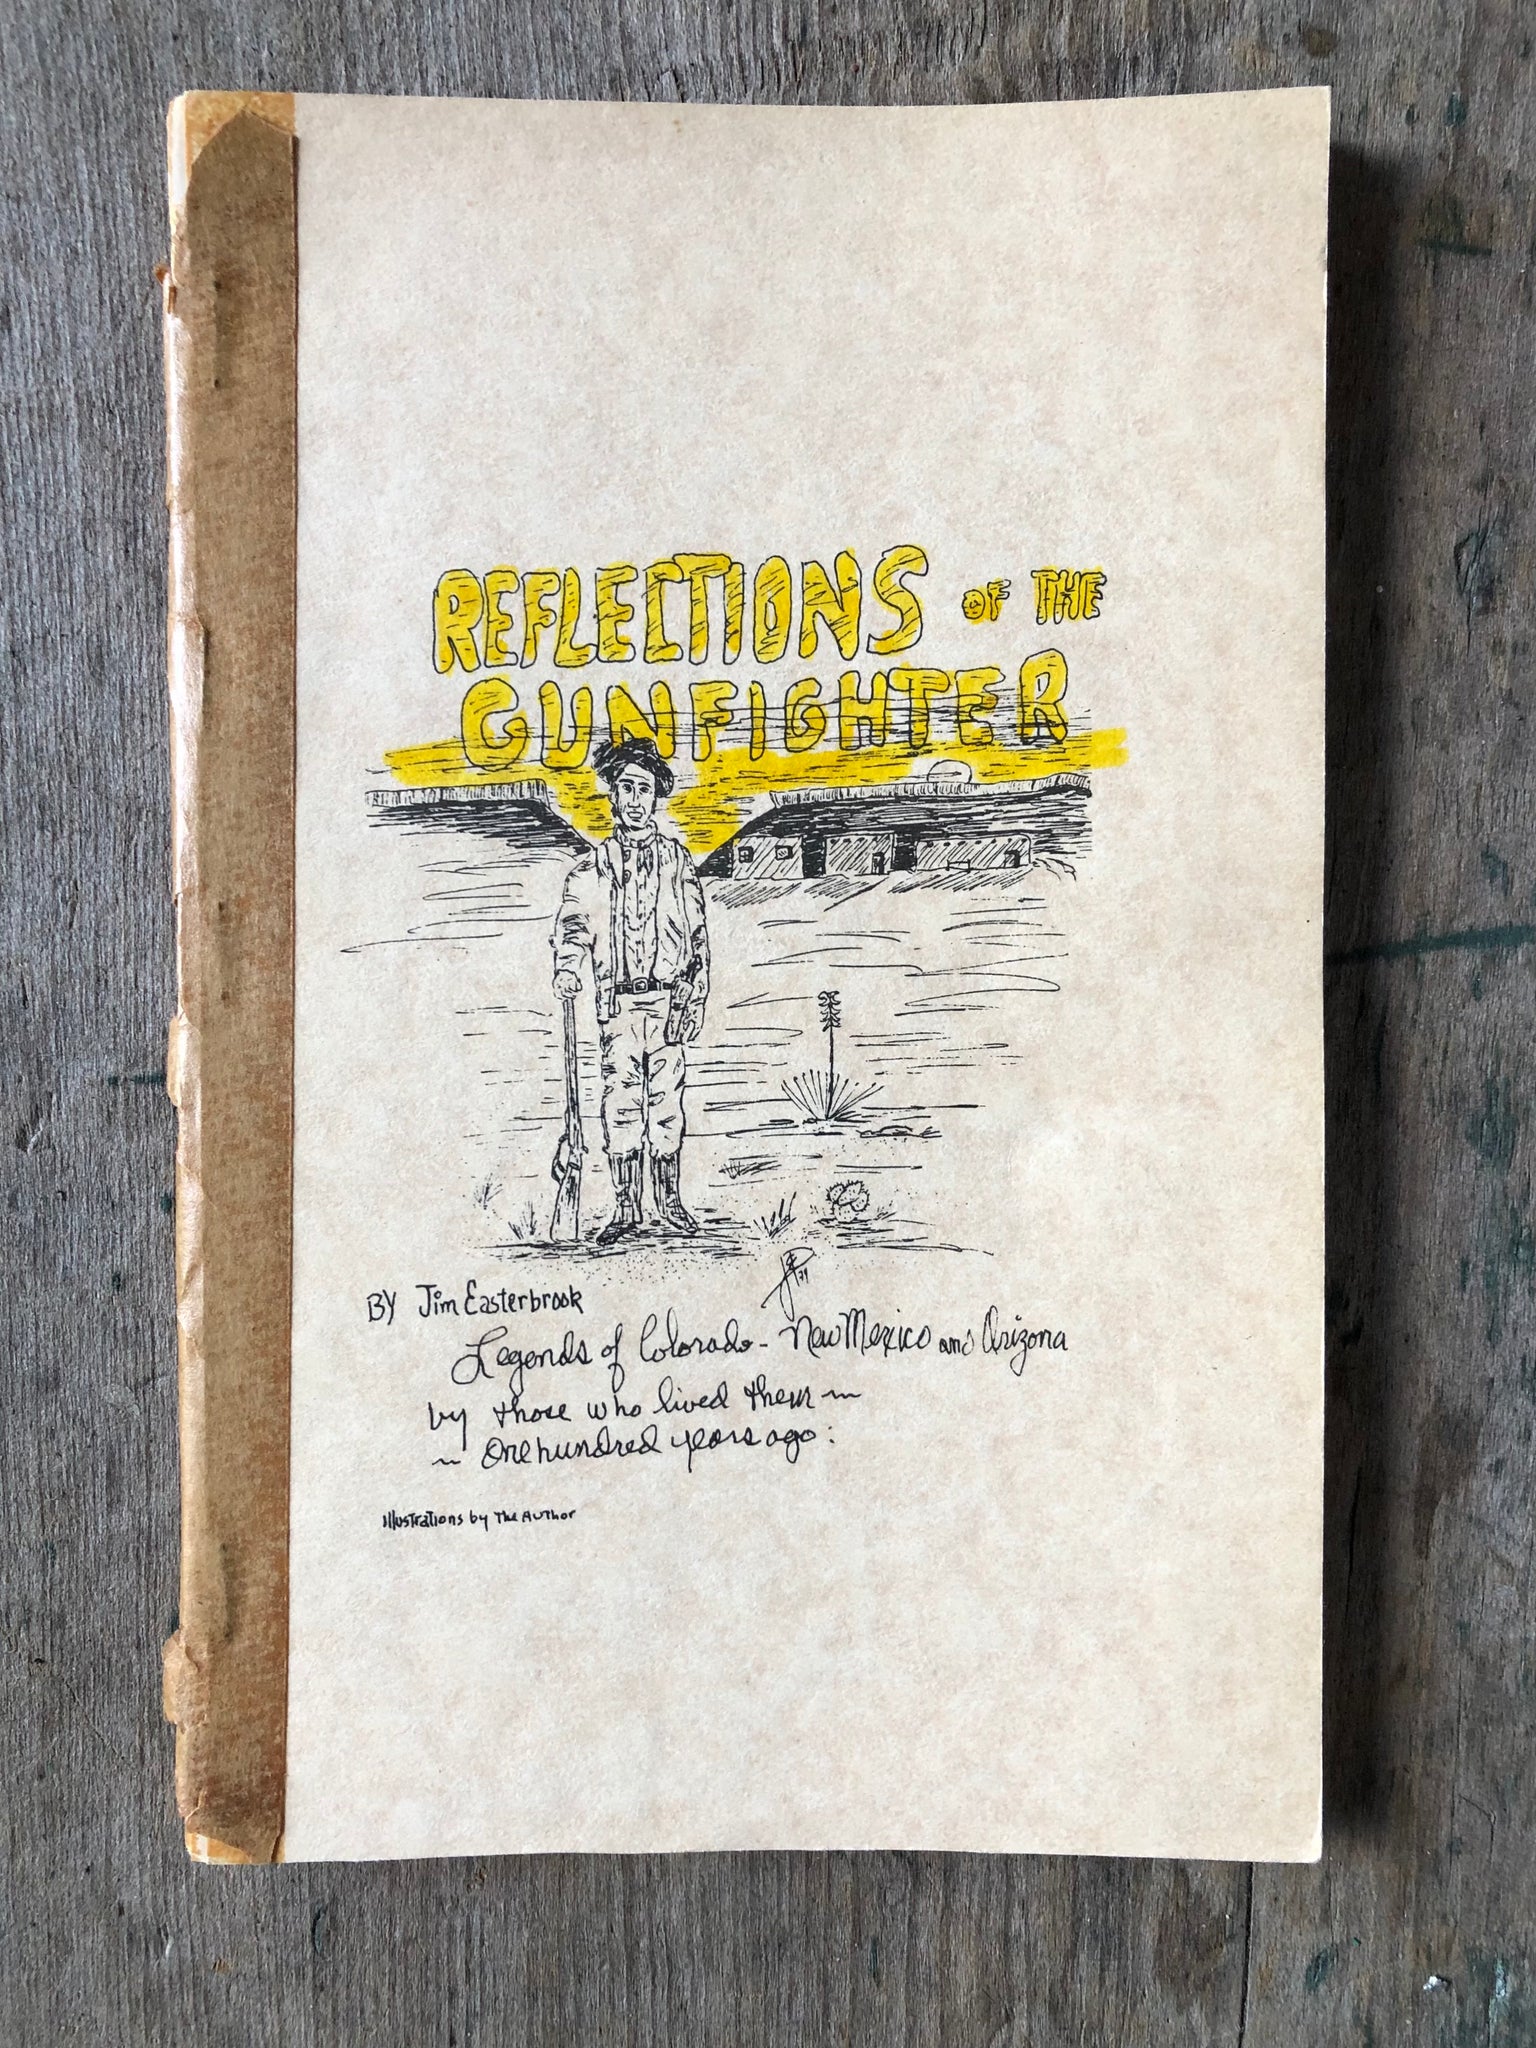 REFLECTIONS OF THE
GUNFIGHTER
BY Jim Easterbrook
Legends of Colorado - New Mexico and Arizona
by those who lived them ~
~ One hundred years ago:
Illustrations by The Author